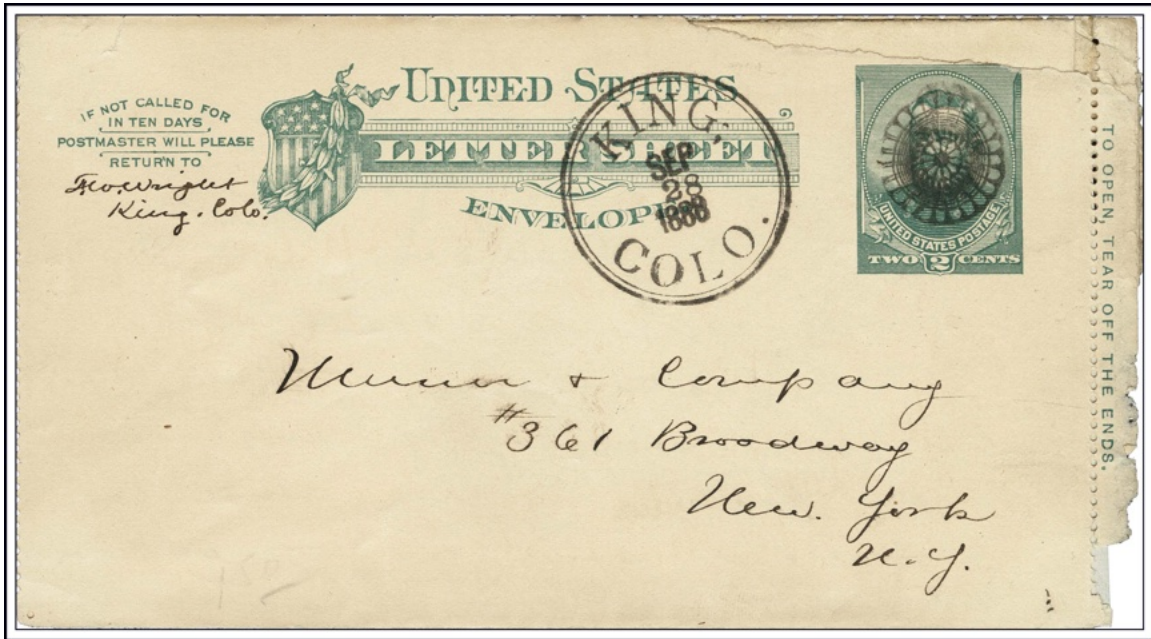 IF NOT CALLED FOR
IN TEN DAYS
POSTMASTER WILL PLEASE
RETURN TO
Wright
King. Colo.
UNITED STATES
LETTER SHEET
ENVELOPE
KING,
SEP
28
1888
COLO.
UNITED STATES POSTAGE
TWO 2 CENTS
TO OPEN, TEAR OFF THE ENDS.
Munn & Company
#361 Broadway
New. York
N.Y.